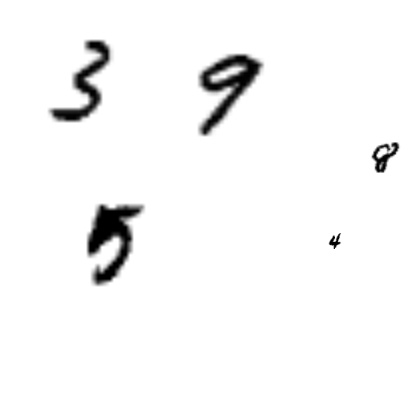 3 9
8
5 4